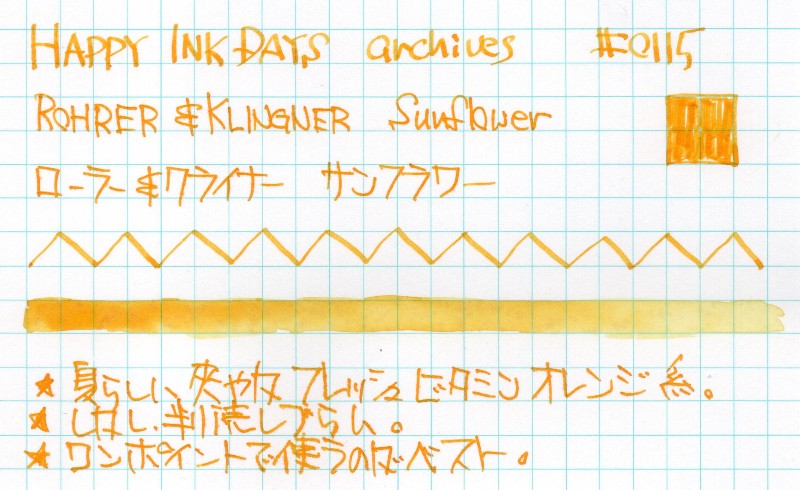 HAPPY INK DAYS archives #0115
ROHRER & KLINGNER Sunflower
ローラー&クライナー サンフラワー
★ 夏らしい、爽やかな フレッシュ ビタミン オレンジ 系。
★ しかし、判読しづらい。
★ ワンポイントで使うのがベスト。